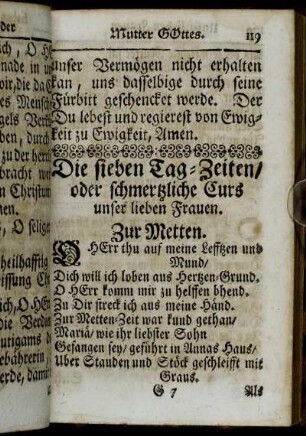 der
ch, O H
nade in un
oir, die da C
es Mensch
gels Verk
ben, durch
zu der herr
bracht wer
n Christum
men.
O selige
heilhafftig
issung Ch
ich, O HE
die Verdie
utigams d
ebährerin
erde, dami
Mutter GOttes. 119
unser Vermögen nicht erhalten
kan, uns dasselbige durch seine
Fürbitt geschencket werde. Der
Du lebest und regierest von Ewig-
keit zu Ewigkeit, Amen.
Die sieben Tag-Zeiten/
oder schmertzliche Curs
unser lieben Frauen.
Zur Metten.
O HErr thu auf meine Lefftzen und
Mund/
Dich will ich loben aus Hertzen-Grund.
O HErr komm mir zu helffen bhend.
Zu Dir streck ich aus meine Händ.
Zur Metten-Zeit war kund gethan/
Mariä/ wie ihr liebster Sohn
Gefangen sey/ geführt in Annas Haus/
Uber Stauden und Stöck geschleifft mit
Graus.
G 7 Als